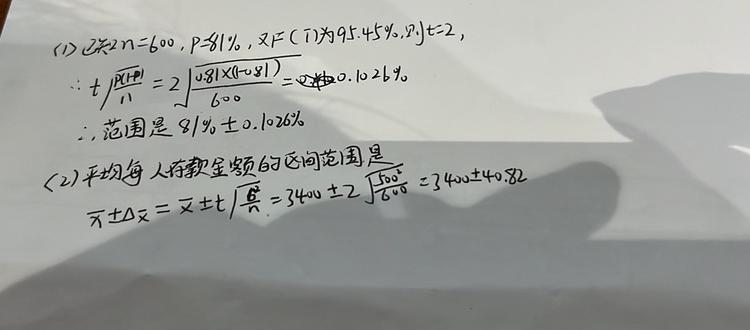 (1) 已知n=600,P=81%,又F(T)为95.45%,则t=2,
∴t√(P(1-P)/n)=2√(0.81×(1-0.81)/600)=0.1026%
∴范围是81%±0.1026%
(2)平均每人存款金额的区间范围是
x̄±Δx̄=x̄±t√(σ²/n)=3400±2√(500²/600)=3400±40.82